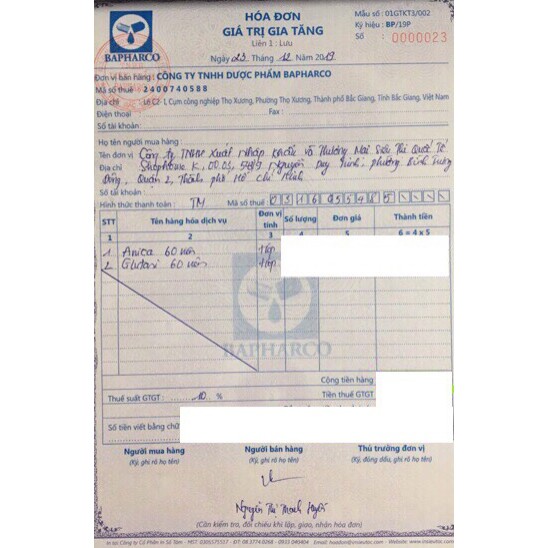 BAPHARCO
HÓA ĐƠN
GIÁ TRỊ GIA TĂNG
Liên 1 : Lưu
Ngày 23 Tháng 12 Năm 2019
Mẫu số : 01GTKT3/002
Ký hiệu : BP/19P
Số : 0000023
Đơn vị bán hàng : CÔNG TY TNHH DƯỢC PHẨM BAPHARCO
Mã số thuế : 2400740588
Địa chỉ : Lô C2- L Cụm công nghiệp Thọ Xương, Phường Thọ Xương, Thành phố Bắc Giang, Tỉnh Bắc Giang, Việt Nam
Điện thoại : Fax :
Số tài khoản:
Họ tên người mua hàng :
Tên đơn vị Công ty TNHH Xuất Nhập Khẩu và Thương Mại Siêu Thị Quốc Tế
Địa chỉ Shophouse K. 00.03, Nguyễn Duy Trinh, phường Bình Trưng
Đông, Quận 2, Thành phố Hồ Chí Minh
Số tài khoản :
Hình thức thanh toán : TM Mã số thuế :
STT Tên hàng hóa dịch vụ Đơn vị tính Số lượng Đơn giá Thành tiền
1 2 3 4 5 6 = 4 x 5
1 Anica 60 viên Hộp
2 60 viên Hộp
BAPHARCO
Cộng tiền hàng
Thuế suất GTGT : 10 % Tiền thuế GTGT
Số tiền viết bằng chữ
Người mua hàng Người bán hàng Thủ trưởng đơn vị
(Ký, ghi rõ họ tên) (Ký, ghi rõ họ tên) (Ký, đóng dấu, ghi rõ họ tên)
Nguyễn Thị Thanh Huyền
(Cần kiểm tra, đối chiếu khi lập, giao, nhận hóa đơn)